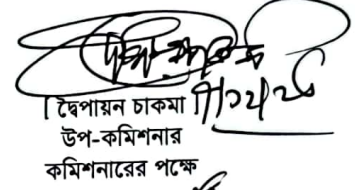 দ্বৈপায়ন চাকমা
উপ-কমিশনার
কমিশনারের পক্ষে